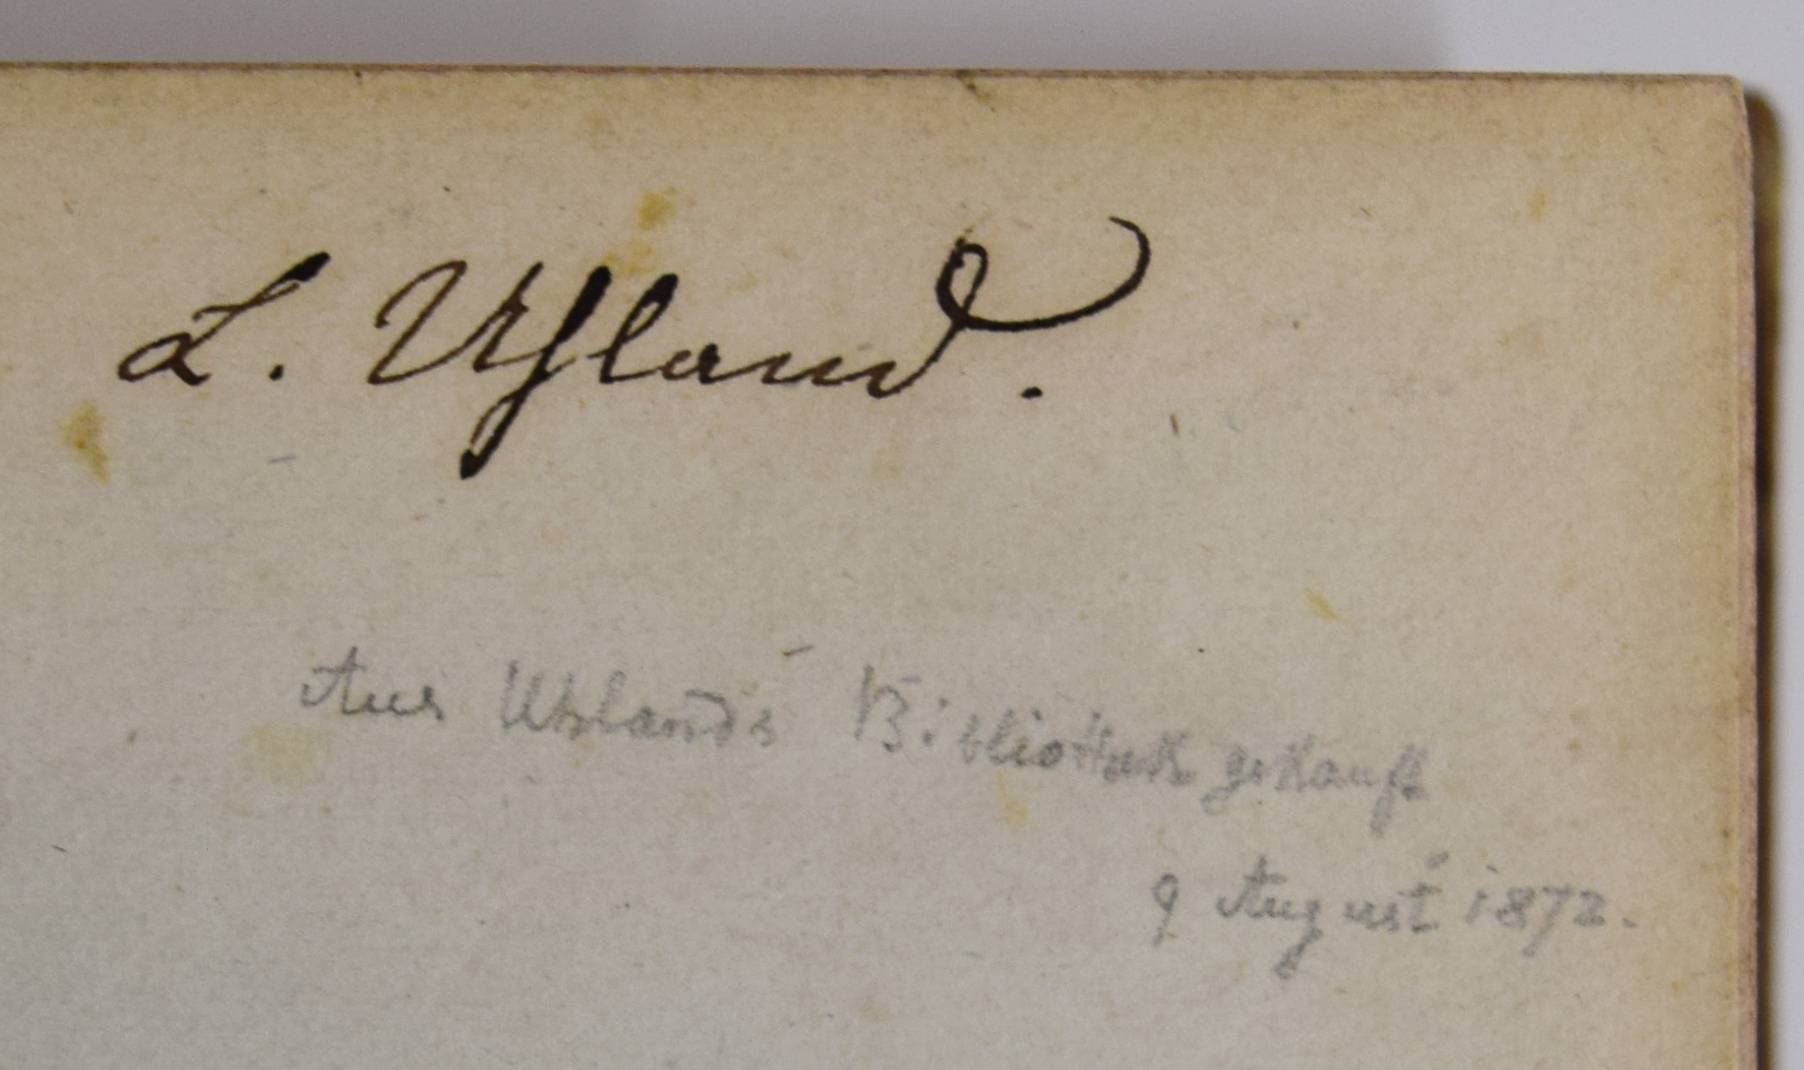 L. Uhland.
Aus Uhlands Bibliothek gekauft
9 August 1872.